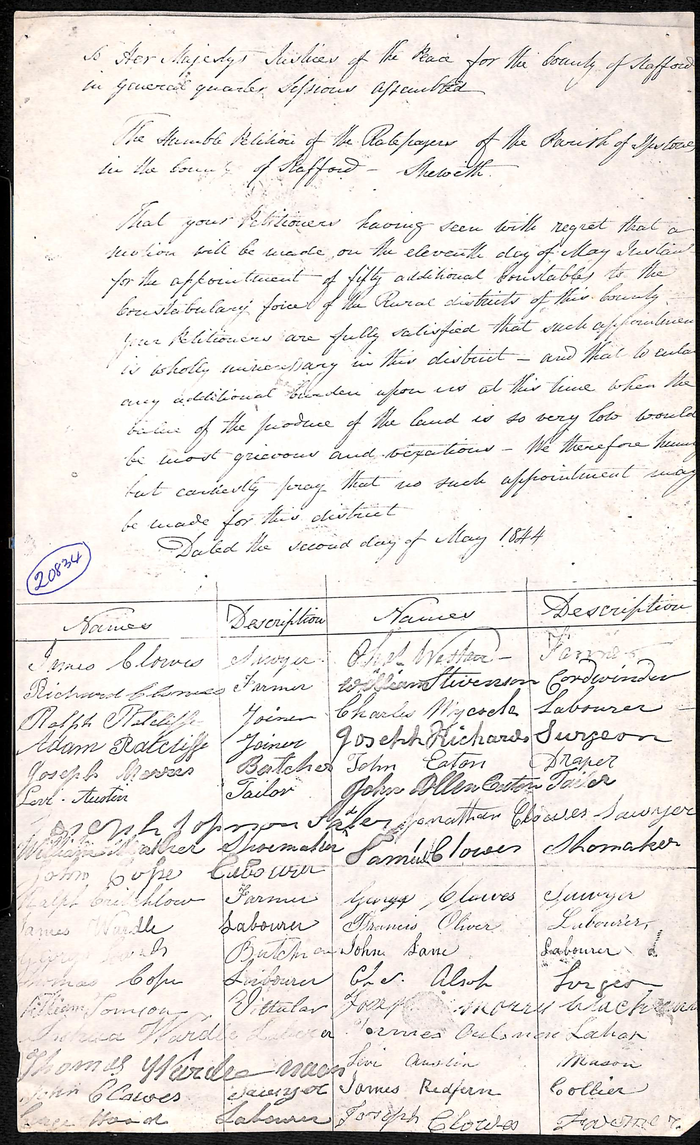 To Her Majestys Justices of the Peace for the County of Stafford
in general quarter Sessions assembled
The Humble Petition of the Ratepayers of the Parish of Ipstones
in the County of Stafford – Sheweth
That your Petitioners having seen with regret that a
motion will be made on the eleventh day of May Instan
for the appointment of fifty additional Constables to the
Constabulary force of the Rural districts of this County
your Petitioners are fully satisfied that such appointmen
is wholly unnecessary in this district – and that to entai
any additional burden upon us at this time when the
value of the produce of the land is so very low would
be most grievous and vexatious – We therefore hum
but earnestly pray that no such appointment may
be made for this district
Dated the second day of May 1844
20834
Names Description Names Description
James Clowes Sawyer Farmer
Richard Clowes Farmer William Stevenson Cordwinder
Ralph Ratcliffe Joiner Charles Wycock Labourer
Adam Ratcliffe Joiner Joseph Richards Surgeon
Joseph Morris Butcher John Eaton Draper
Levi Austin Tailor John Allen Eaton Tailer
Jonathan Clowes Sawyer
William Shoemaker Samuel Clowes Shomaker
John Cope Labourer
Ralph Critchlow Farmer George Clowes Sawyer
James Wardle Labourer Francis Oliver Labourer
Butcher John Lane Labourer
Thomas Cope Labourer Alsop
William Tomson
Wardle
Thomas Wardle Levi Austin Mason
John Clowes Sawyer James Redfern Collier
George Wood Labourer Joseph Clowes Farmer